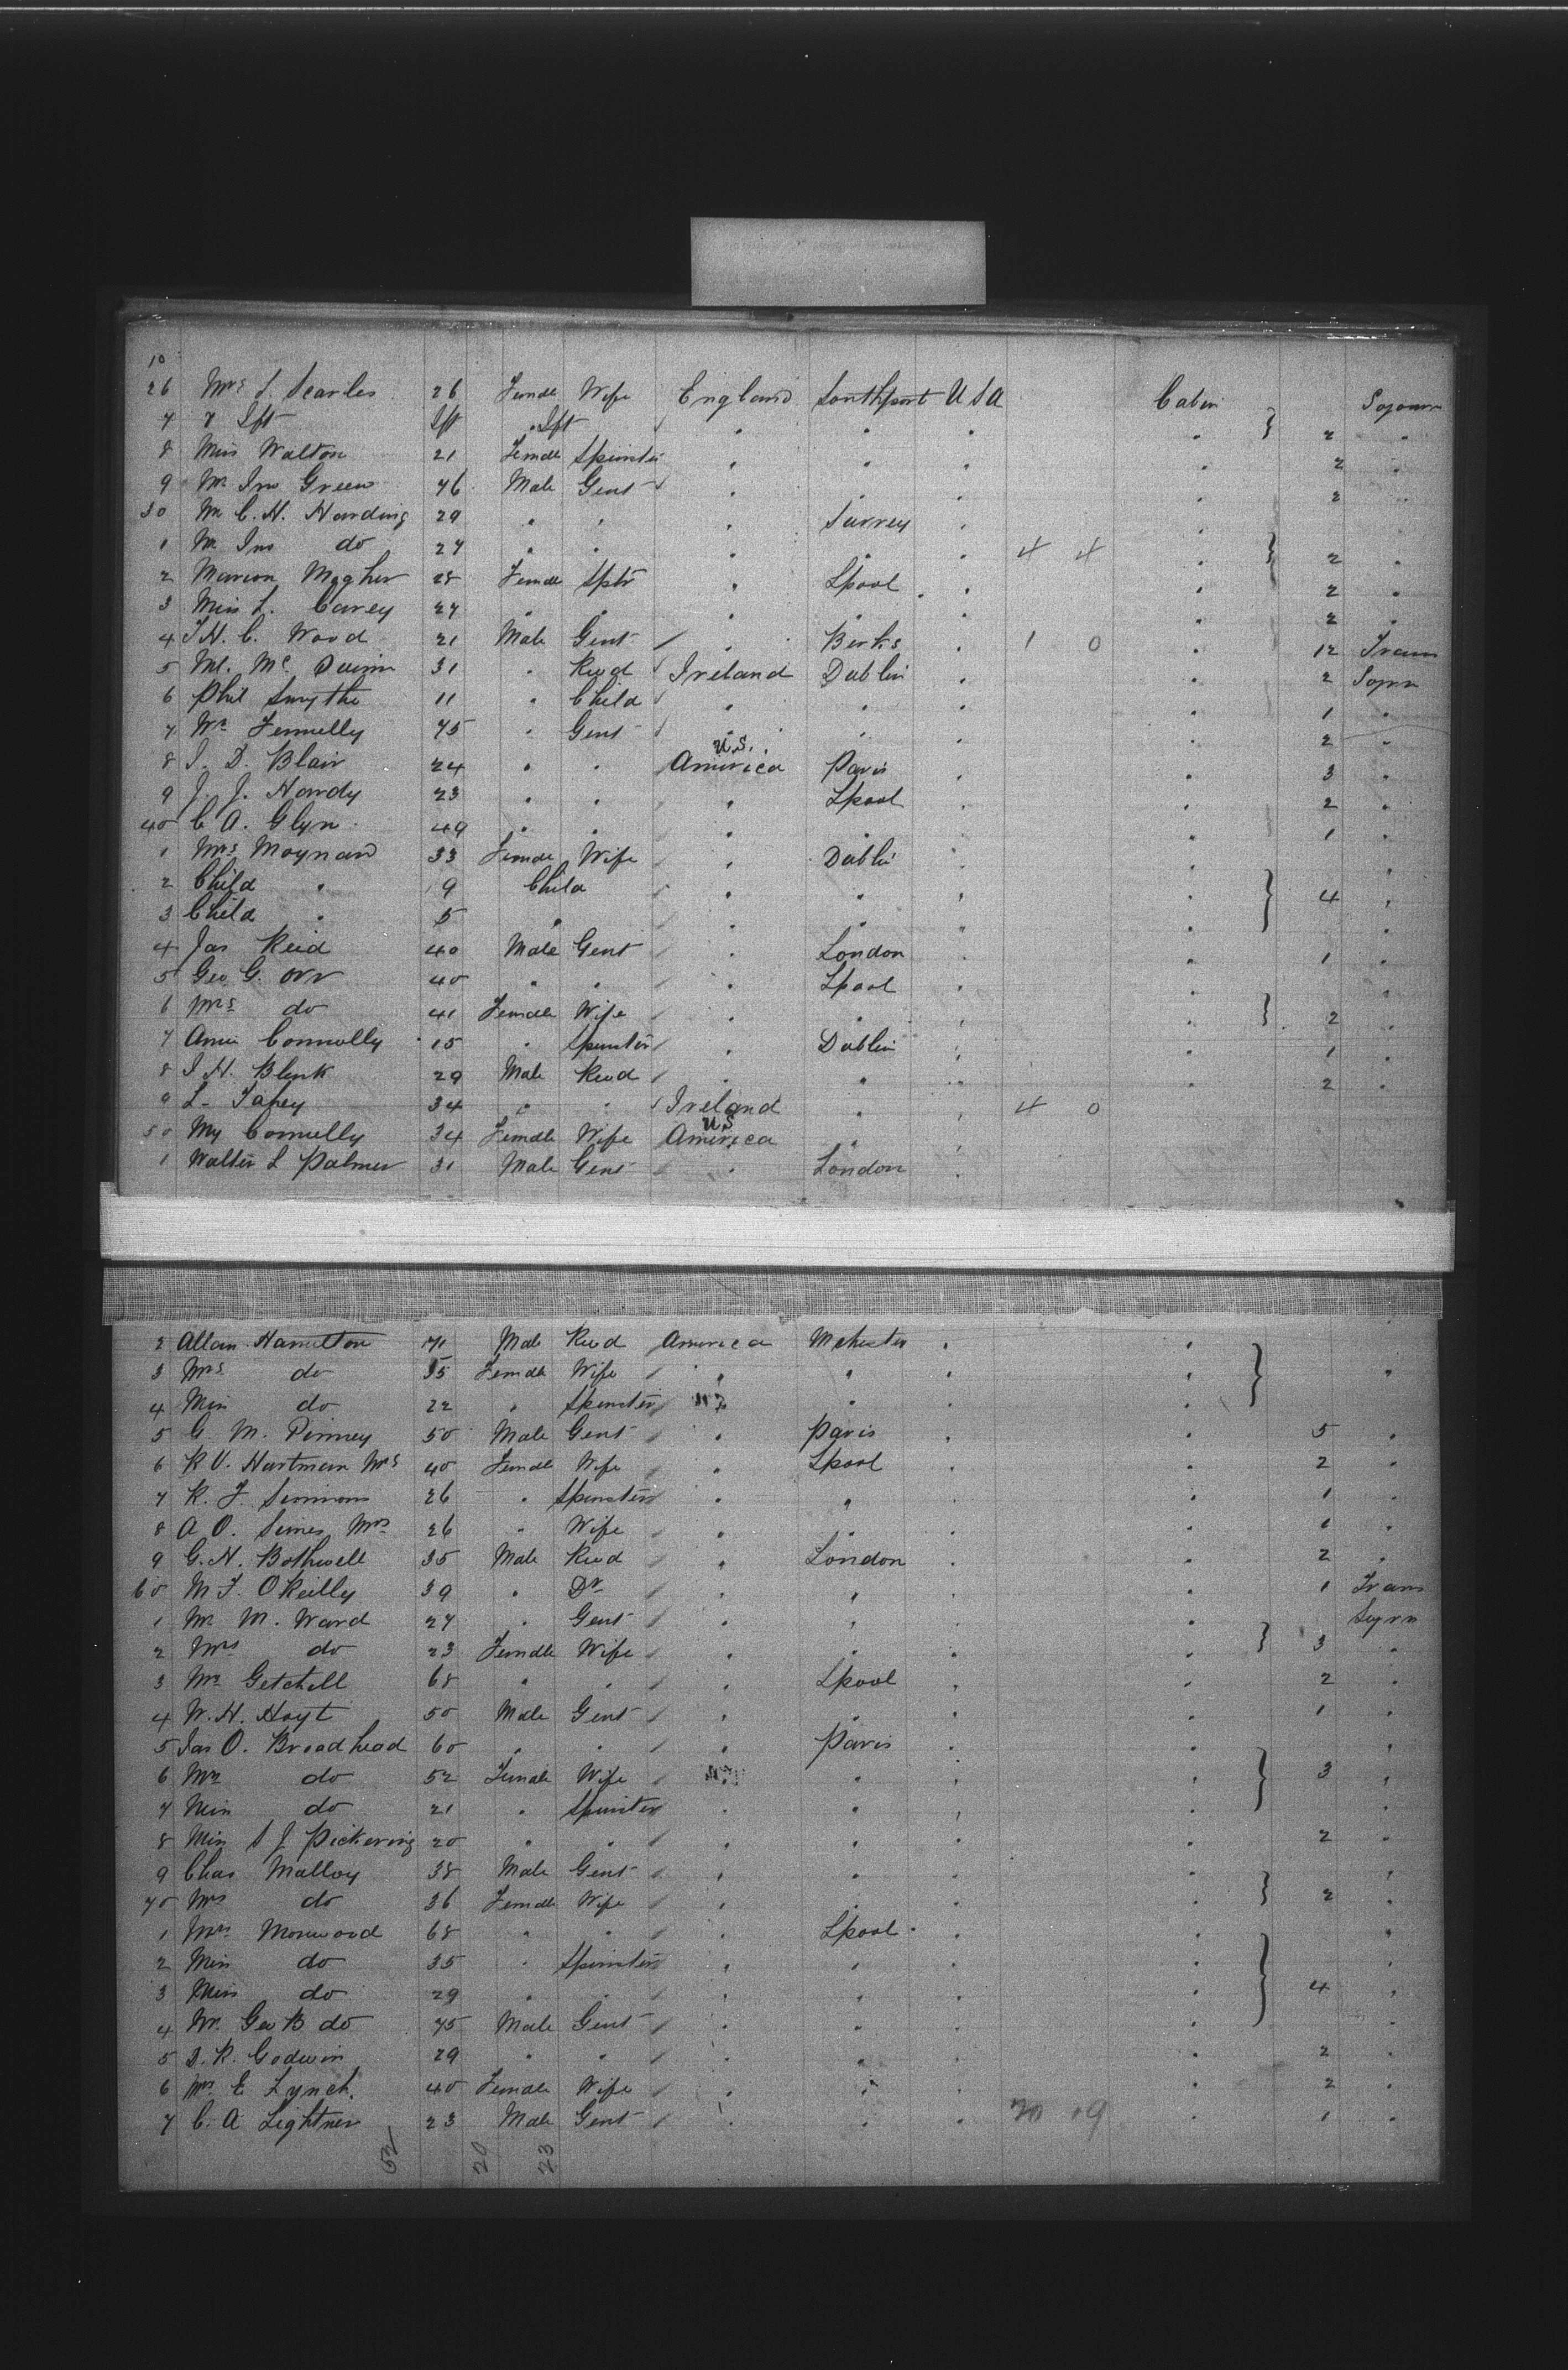 10
26 Mrs S. Searles 26 Female Wife England Southport USA Cabin Sojourn
7 & Ift Ift " Ift " " " " 2 "
8 Miss Walton 21 Female Spinster " " " " 2 "
9 Mr Jno Green 46 Male Gent " " " " 2 "
30 Mr C. H. Harding 29 " " " Surrey " "
1 Mr Jno do 27 " " " " " 4 4 " 2 "
2 Marion Magher 28 Female Sptr " Lpool " " 2 "
3 Miss L. Carey 27 " " " " " " 2
4 T H. C. Wood 21 Male Gent " Berks " 1 0 " 12 Trans
5 Ml. Mc Quinn 31 " Revd Ireland Dublin " " 2 Sojrn
6 Phil Smythe 11 " Child " " " " 1 "
7 Wm Fennelly 45 " Gent " " " " 2 "
U.S.
8 J. D. Blair 24 " " America Paris " " 3 "
9 J. J. Hardy 23 " " " Lpool " " 2 "
40 C A. Glyn 49 " " " " " " 1 "
1 Mrs Moynard 33 Female Wife " Dublin " " "
2 Child " 9 Child " " " " 4 "
3 Child " 5 " " " " " "
4 Jas Reid 40 Male Gent " London " " 1 "
5 Geo G. Orr 40 " " " Lpool " " "
6 Mrs do 41 Female Wife " " " " 2 "
7 Annie Connolly 15 " Spinster " Dublin " " 1 "
8 J H. Blenk 29 Male Revd " " " " 2 "
9 L. Fahey 34 " " Ireland " " 4 0
U.S
50 My Connelly 34 Female Wife America "
1 Walter L Palmer 31 Male Gent " London "
2 Allan Hamilton 71 Male Revd America Mchester " "
3 Mrs do 55 Female Wife " " " " "
4 Miss do 22 " Spinster " " "
5 G. M. Pinney 50 Male Gent " Paris " " 5 "
6 R V. Hartman Mrs 40 Female Wife " Lpool " " 2 "
7 K. F. Simmons 26 " Spinster " " " " 1 "
8 A O. Simes Mrs 26 " Wife " " " " 1 "
9 G. N. Bothwell 35 Male Revd " London " " 2 "
60 M F. O'Reilly 39 " Dr " " " " 1 Trans
1 Mr M. Ward 27 " Gent " " " Sojrn
2 Mrs do 23 Female Wife " " " " 3 "
3 Mrs Getchell 68 " " " Lpool " " 2 "
4 W. H. Hoyt 50 Male Gent " " " " 1 "
5 Jas O. Broadhead 60 " " " Paris " " "
6 Mrs do 52 Female Wife " " " 3 "
7 Miss do 21 " Spinster " " " "
8 Miss S J Pickering 20 " " " " " " 2 "
9 Chas Malloy 38 Male Gent " " " " "
70 Mrs do 36 Female Wife " " " " 2 "
1 Mrs Monwood 68 " " " Lpool " " "
2 Miss do 35 " Spinster " " " " "
3 Miss do 29 " " " " " " 4 "
4 Mr. Geo B do 45 Male Gent " " " " "
5 D. R. Godwin 29 " " " " " " 2 "
6 Mrs E Lynch. 40 Female Wife " " " " 2 "
7 C. A Lightner 23 Male Gent " " " 20 19 1 "
52 20 23